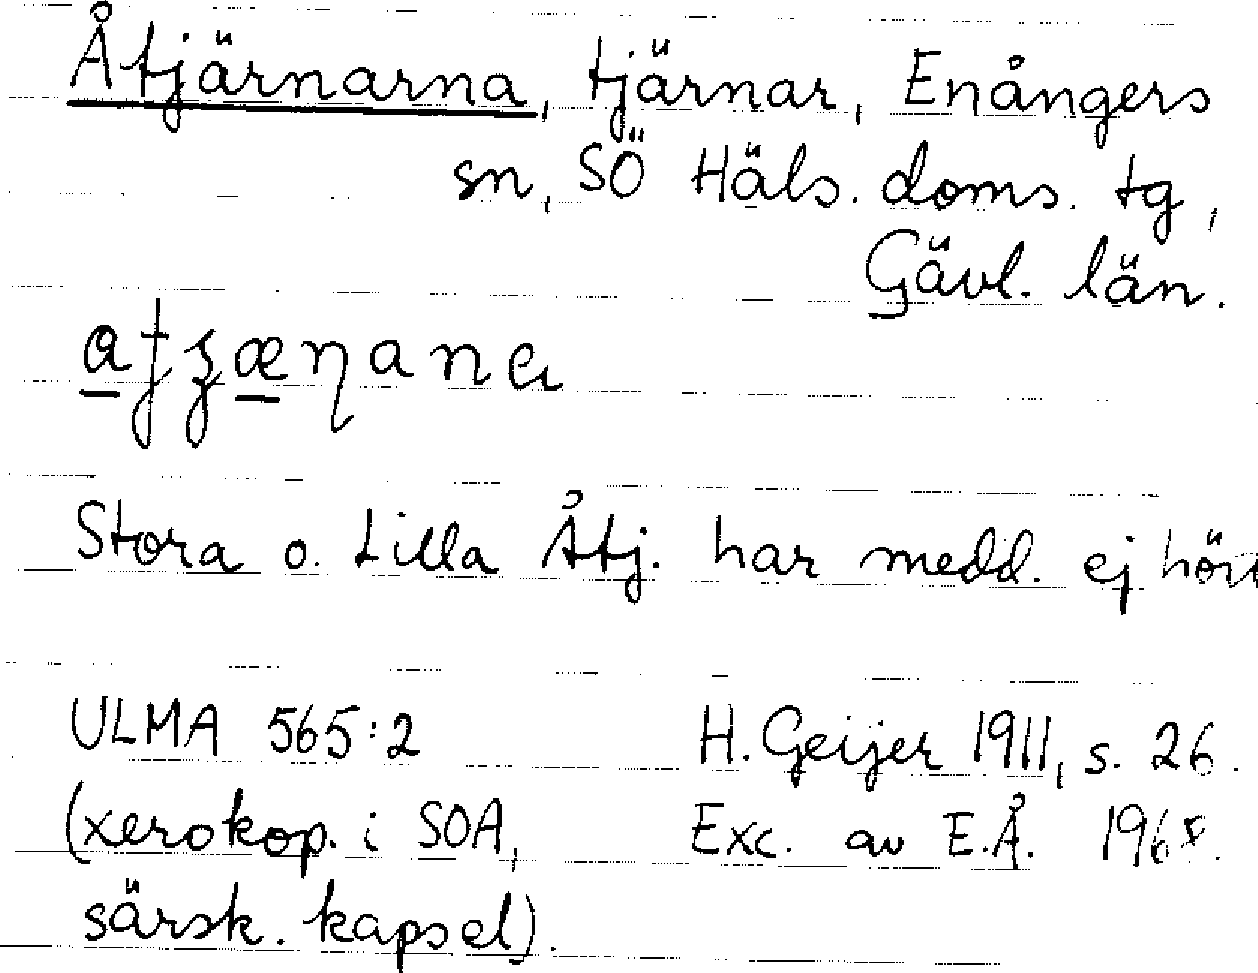 Åtjärnarna, tjärnar, Enångers
sn, SÖ Häls. doms. tg,
Gävl. län.
Stora o. Lilla Åtj. har medd. ej hört
ULMA 565:2 H. Geijer 1911, s. 26.
(xerokop. i SOA, Exc. av E.Å. 1968.
särsk. kapsel).